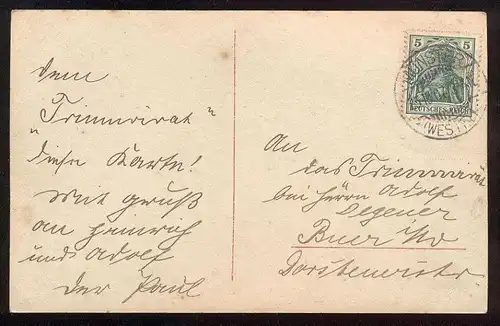 dem
„Triumvirat"
diese Karte!
Mit Gruß
an Heinrich
und Adolf
Der Paul
5 5
DEUTSCHES REICH
MÜNSTER
(WESTF.)
An
das Triumvirat
bei Herrn Adolf
Degener
Buer i/W
Dorstenerstr.